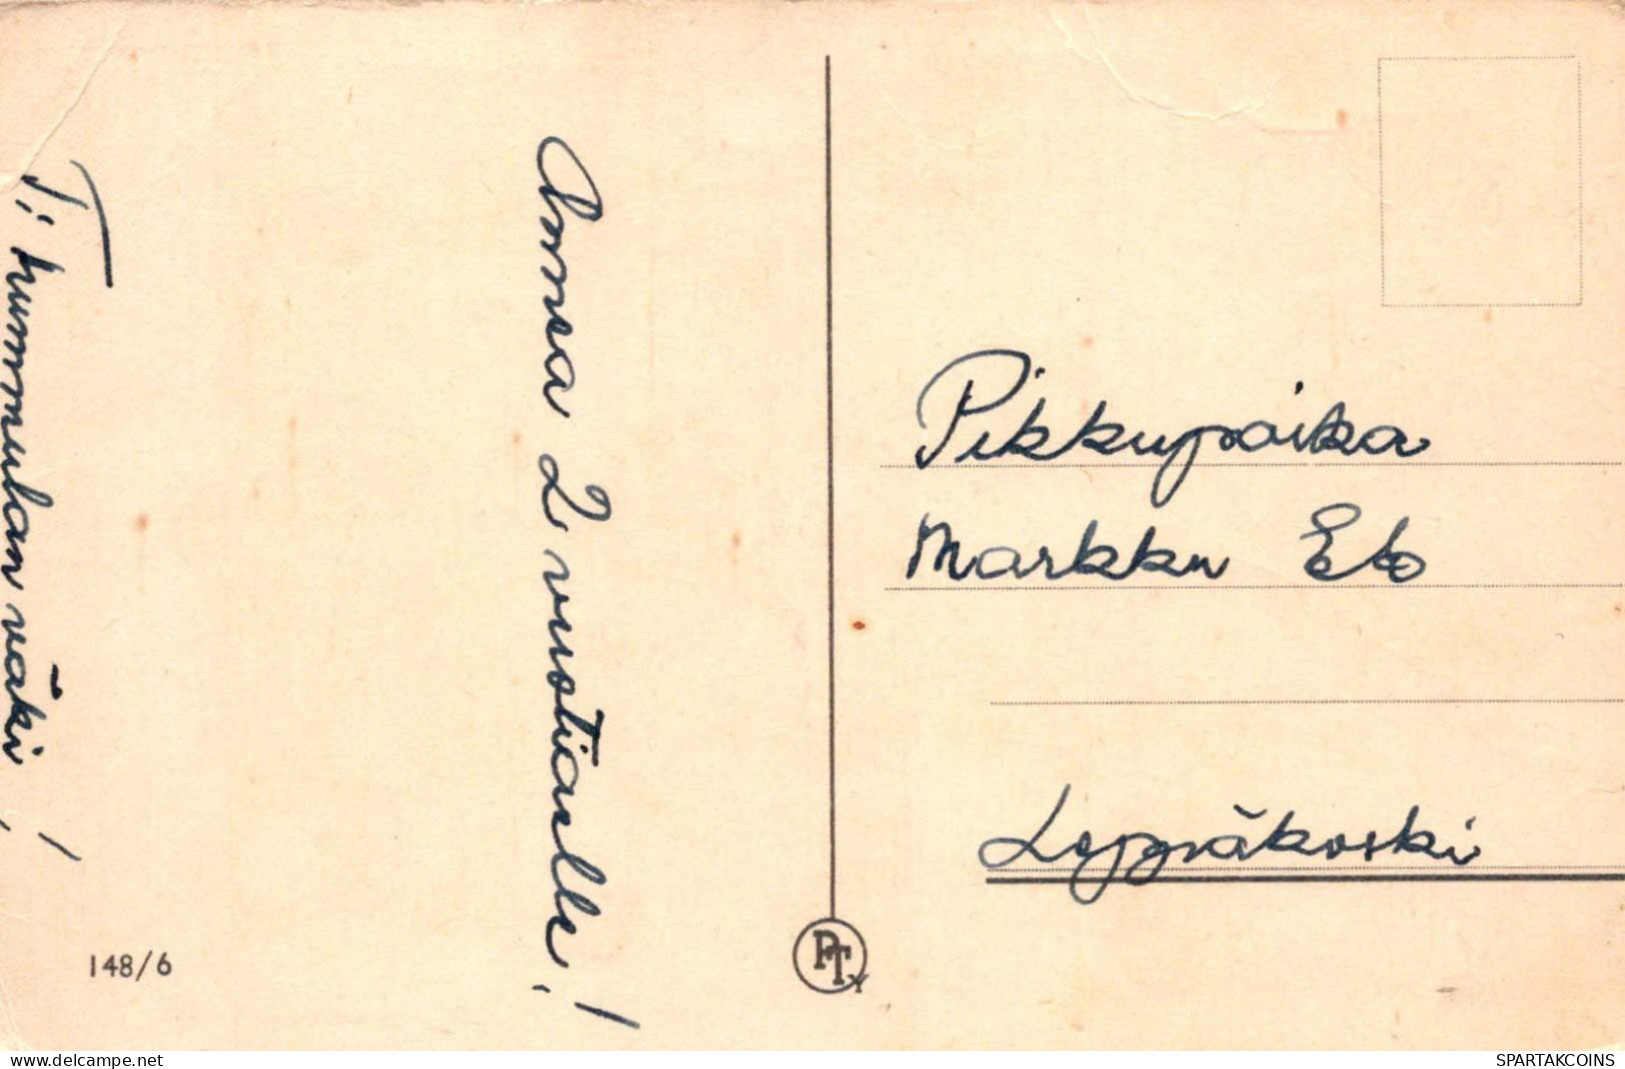 Onnea 2 vuotiaalle!
T: Kummulan väki!
Pikkupoika
Markku Elo
Leppäkoski
148/6
PTY
delcampe.net
SPARTAKCOINS